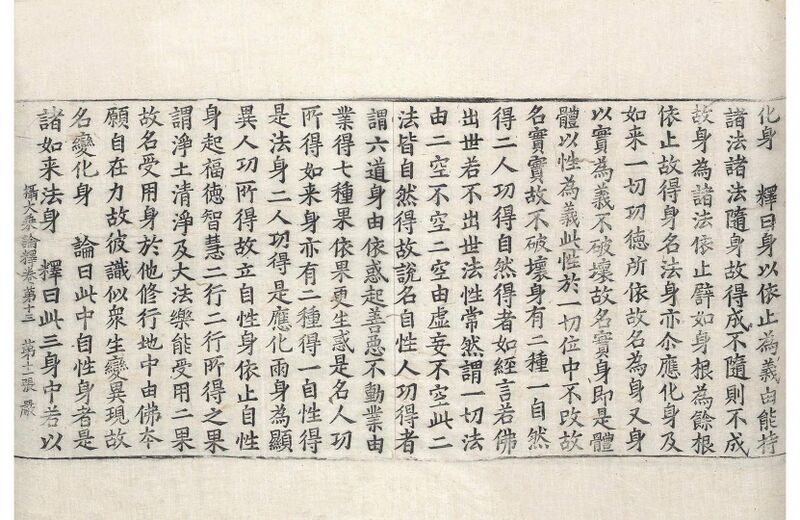 化身　釋曰身以依止為義由能持
諸法諸法隨身故得成不隨則不成
故身為諸法依止譬如身根為餘根
依止故得身名法身亦尒應化身及
如来一切功徳所依故名為身又身
以實為義不破壞故名實身即是體
體以性為義此性於一切位中不改故
名實實故不破壞身有二種一自然
得二人功得自然得者如經言若佛
出世若不出世法性常然謂一切法
由二空不空二空由虛妄不空此二
法皆自然得故說名自性人功得者
謂六道身由依惑起善惡不動業由
業得七種果依果更生惑是名人功
所得如来身亦有二種得一自性得
是法身二人功得是應化兩身為顯
異人功所得故立自性身依止自性
身起福徳智慧二行二行所得之果
謂淨土清淨及大法樂能受用二果
故名受用身於他修行地中由佛夲
願自在力故彼識似衆生變異現故
名變化身　論曰此中自性身者是
諸如来法身　釋曰此三身中若以
攝大乗論釋卷第十三　第十二張　嚴